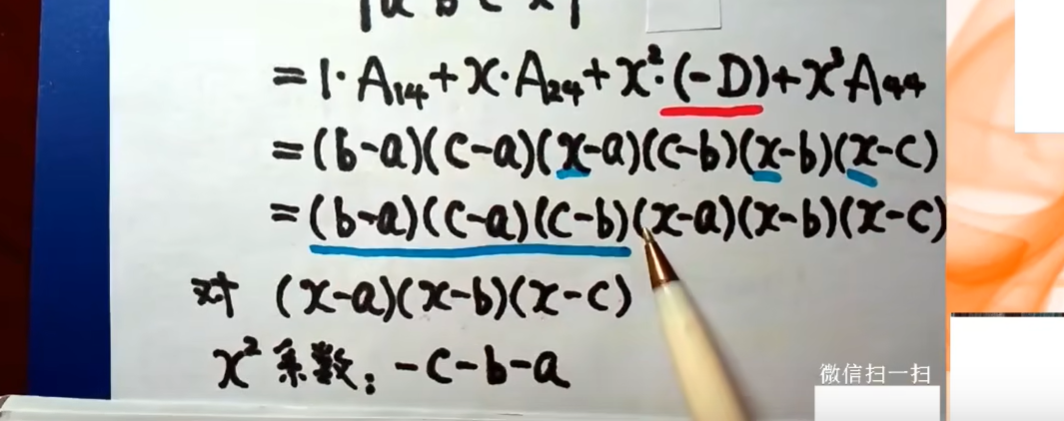 =1·A₁₄+x·A₂₄+x²·(-D)+x³A₄₄
=(b-a)(c-a)(x-a)(c-b)(x-b)(x-c)
=(b-a)(c-a)(c-b)(x-a)(x-b)(x-c)
对 (x-a)(x-b)(x-c)
x²系数：-c-b-a
微信扫一扫